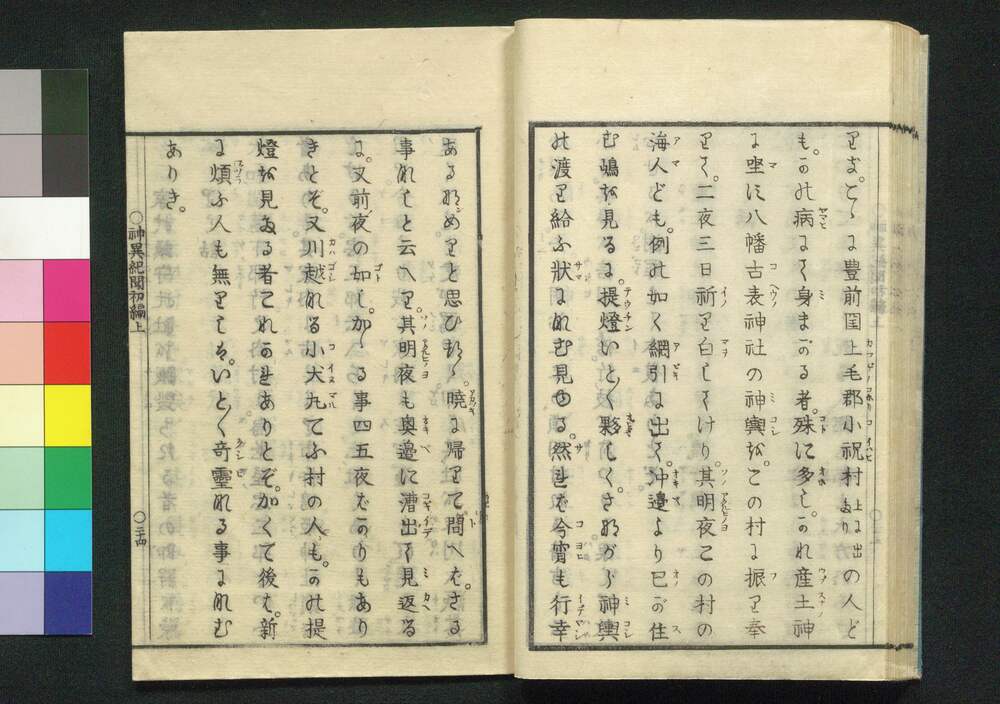 りき。こゝに豊前国上毛郡小祝村 上に出たり の人ど
も。かの病にて身まかる者。殊に多し。かれ産土神
に坐す八幡古表神社の神輿を。この村に振り奉
りて。二夜三日祈り白してけり。其明夜この村の
海人ども。例の如く網引に出て。沖邉より己が住
む嶋を見るに。提燈いと〱夥しく。さながら神輿
の渡り給ふ状になむ見ゆる。然れば今宵も行幸
あるなめりと思ひをり。暁に帰りて問へば。さる
事なしと云へり。其明夜も奥邉に漕出て見返る
に。又前夜の如し。かゝる事四五夜ばかりもあり
きとぞ。又川越なる小犬丸てふ村の人も。かの提
燈を見たる者これかれありとぞ。かくて後は。新
に煩ふ人も無りしは。いと〱奇霊なる事になむ
ありき。
〇神異紀聞初編上
〇二十四